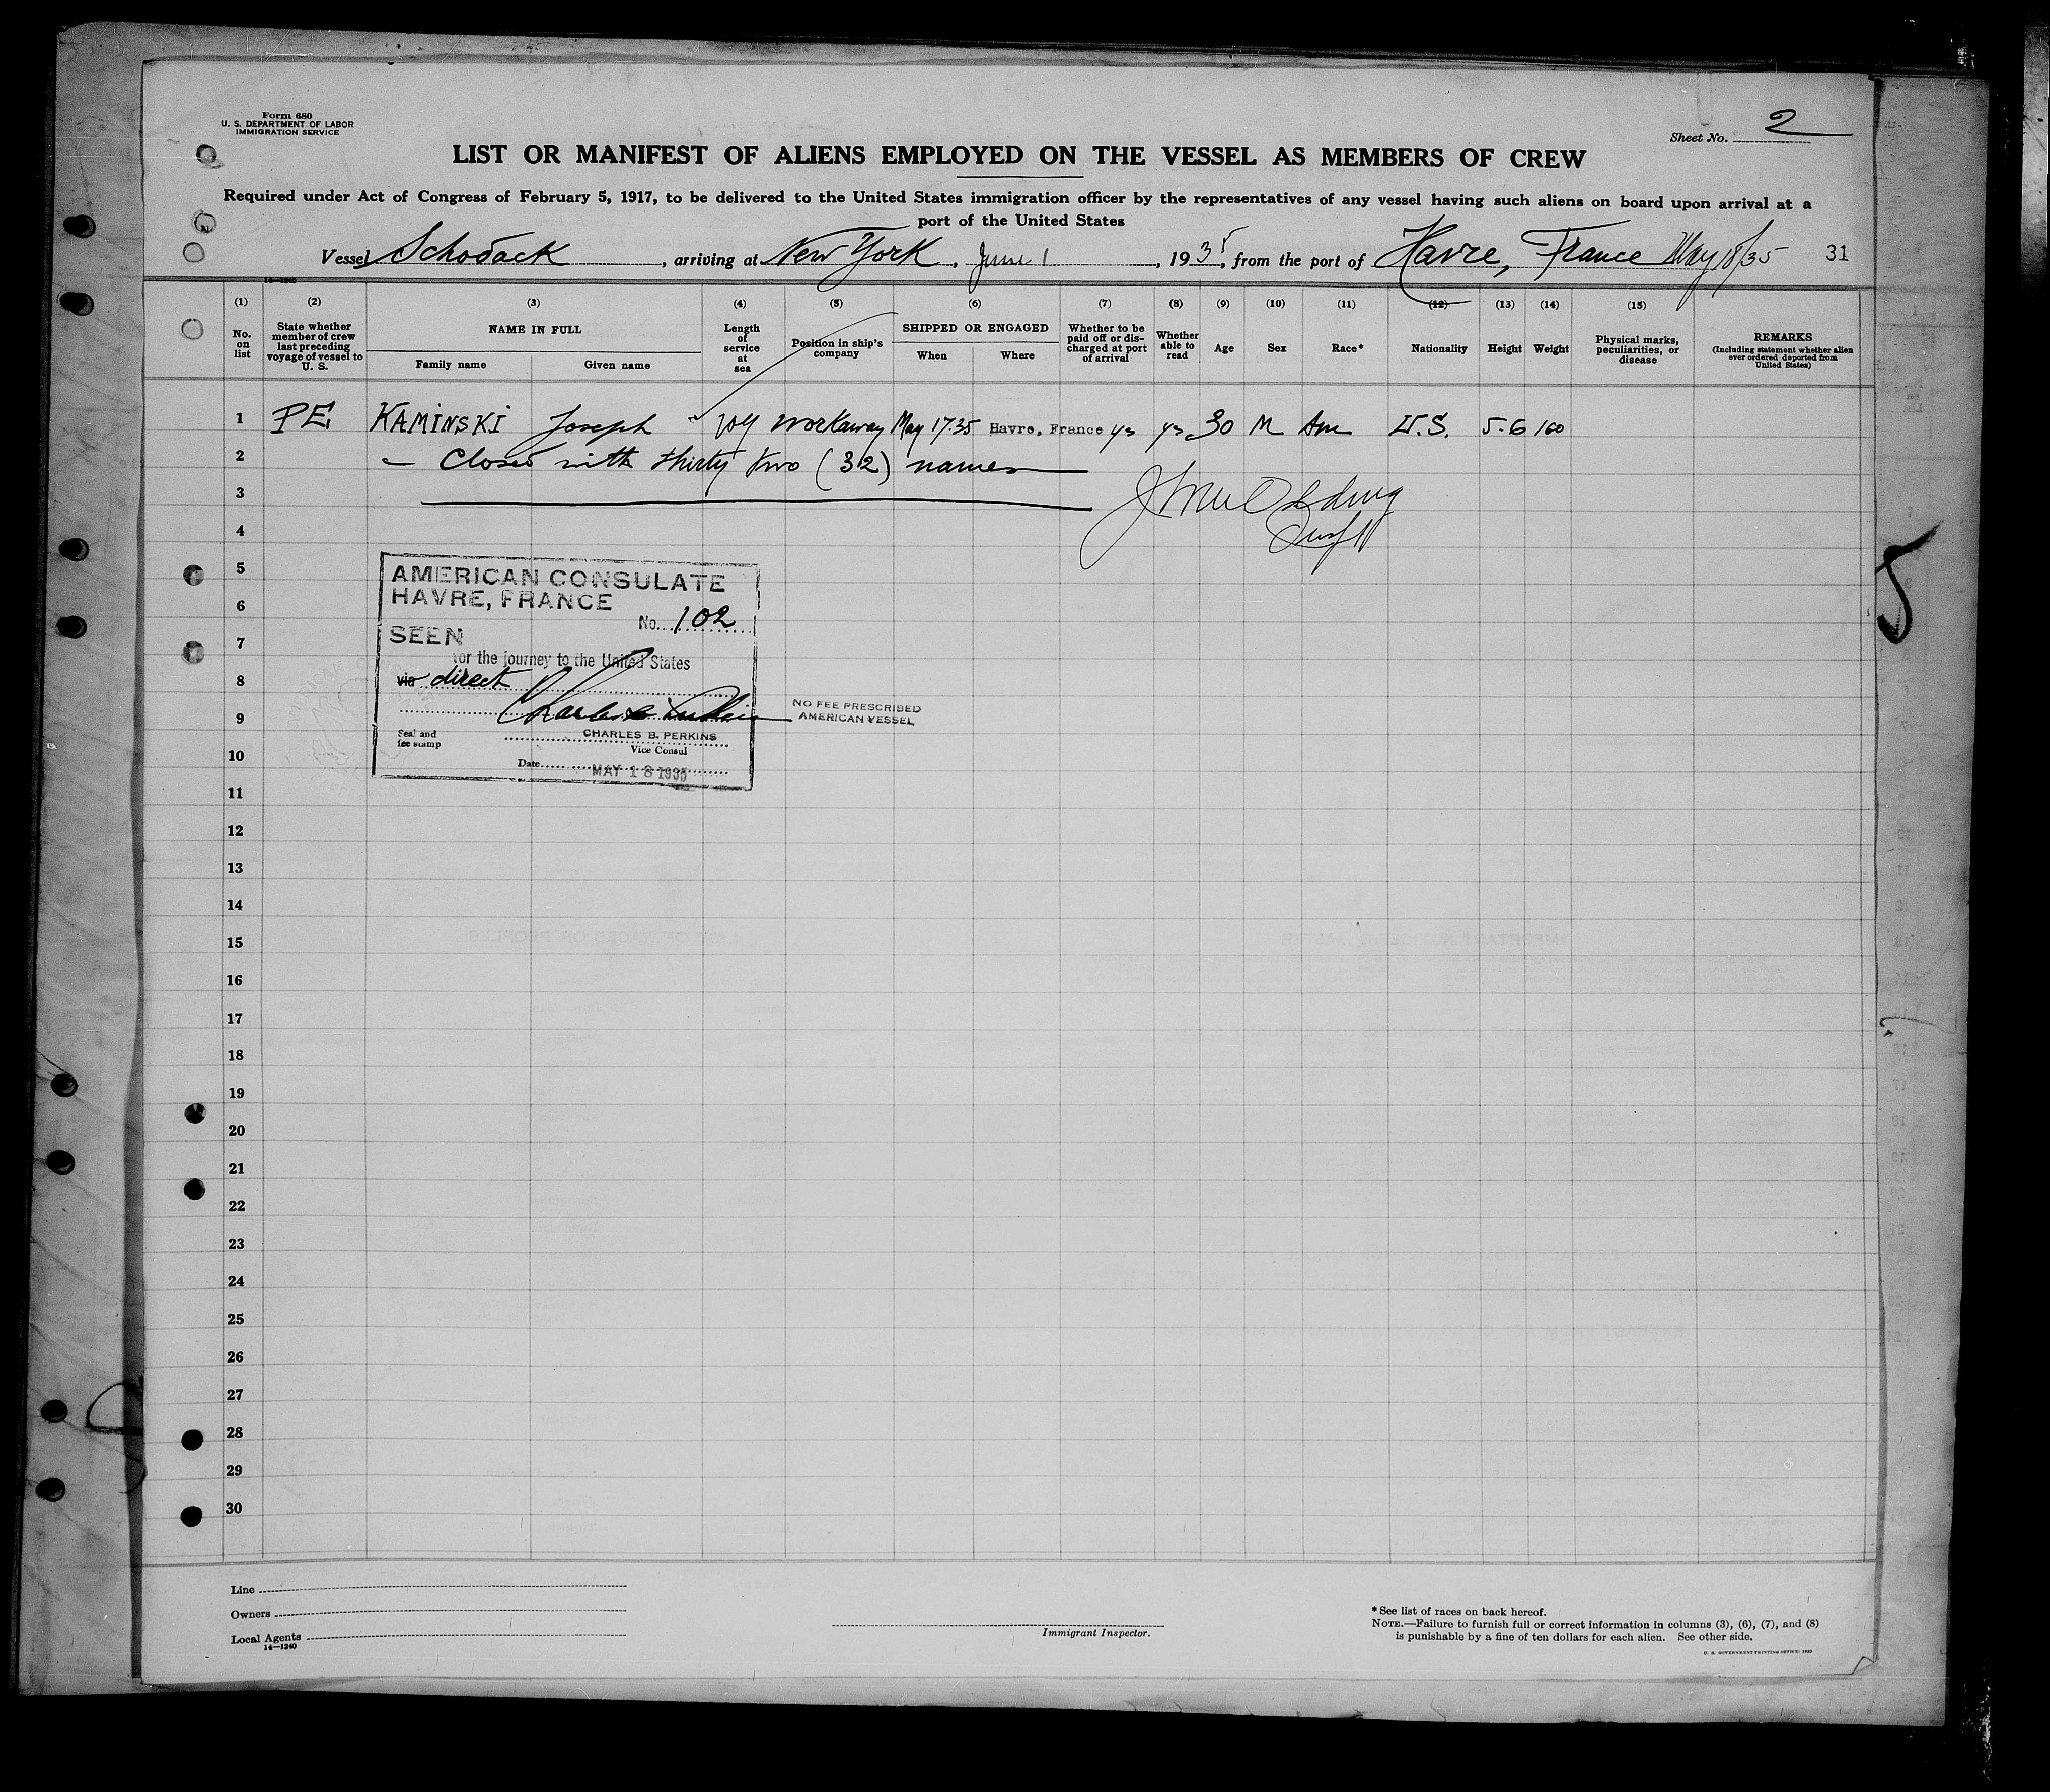 Form 680
U. S. DEPARTMENT OF LABOR
IMMIGRATION SERVICE
Sheet No. 2
LIST OR MANIFEST OF ALIENS EMPLOYED ON THE VESSEL AS MEMBERS OF CREW
Required under Act of Congress of February 5, 1917, to be delivered to the United States immigration officer by the representatives of any vessel having such aliens on board upon arrival at a
port of the United States
Vessel Schodack, arriving at New York, June 1, 1935, from the port of Havre, France May 18/35 31
14—1240
(1) (2) (3) (4) (5) (6) (7) (8) (9) (10) (11) (12) (13) (14) (15)
No. on list
State whether member of crew last preceding voyage of vessel to U. S.
NAME IN FULL
Family name Given name
Length of service at sea
Position in ship's company
SHIPPED OR ENGAGED
When Where
Whether to be paid off or discharged at port of arrival
Whether able to read
Age Sex Race* Nationality Height Weight
Physical marks, peculiarities, or disease
REMARKS
(Including statement whether alien ever ordered deported from United States)
1 PE KAMINSKI Joseph workaway May 17-35 Havre, France ys ys 30 M Am U.S. 5-6 160
2 – Closed with thirty two (32) names
3
4
5
6
7
8
9
10
11
12
13
14
15
16
17
18
19
20
21
22
23
24
25
26
27
28
29
30
AMERICAN CONSULATE
HAVRE, FRANCE
No. 102
SEEN
for the journey to the United States
via direct
CHARLES B. PERKINS
Seal and fee stamp
Vice Consul
Date MAY 18 1935
NO FEE PRESCRIBED
AMERICAN VESSEL
5
Line
Owners
Local Agents
14—1240
Immigrant Inspector.
* See list of races on back hereof.
NOTE.—Failure to furnish full or correct information in columns (3), (6), (7), and (8)
is punishable by a fine of ten dollars for each alien. See other side.
U. S. GOVERNMENT PRINTING OFFICE: 1933